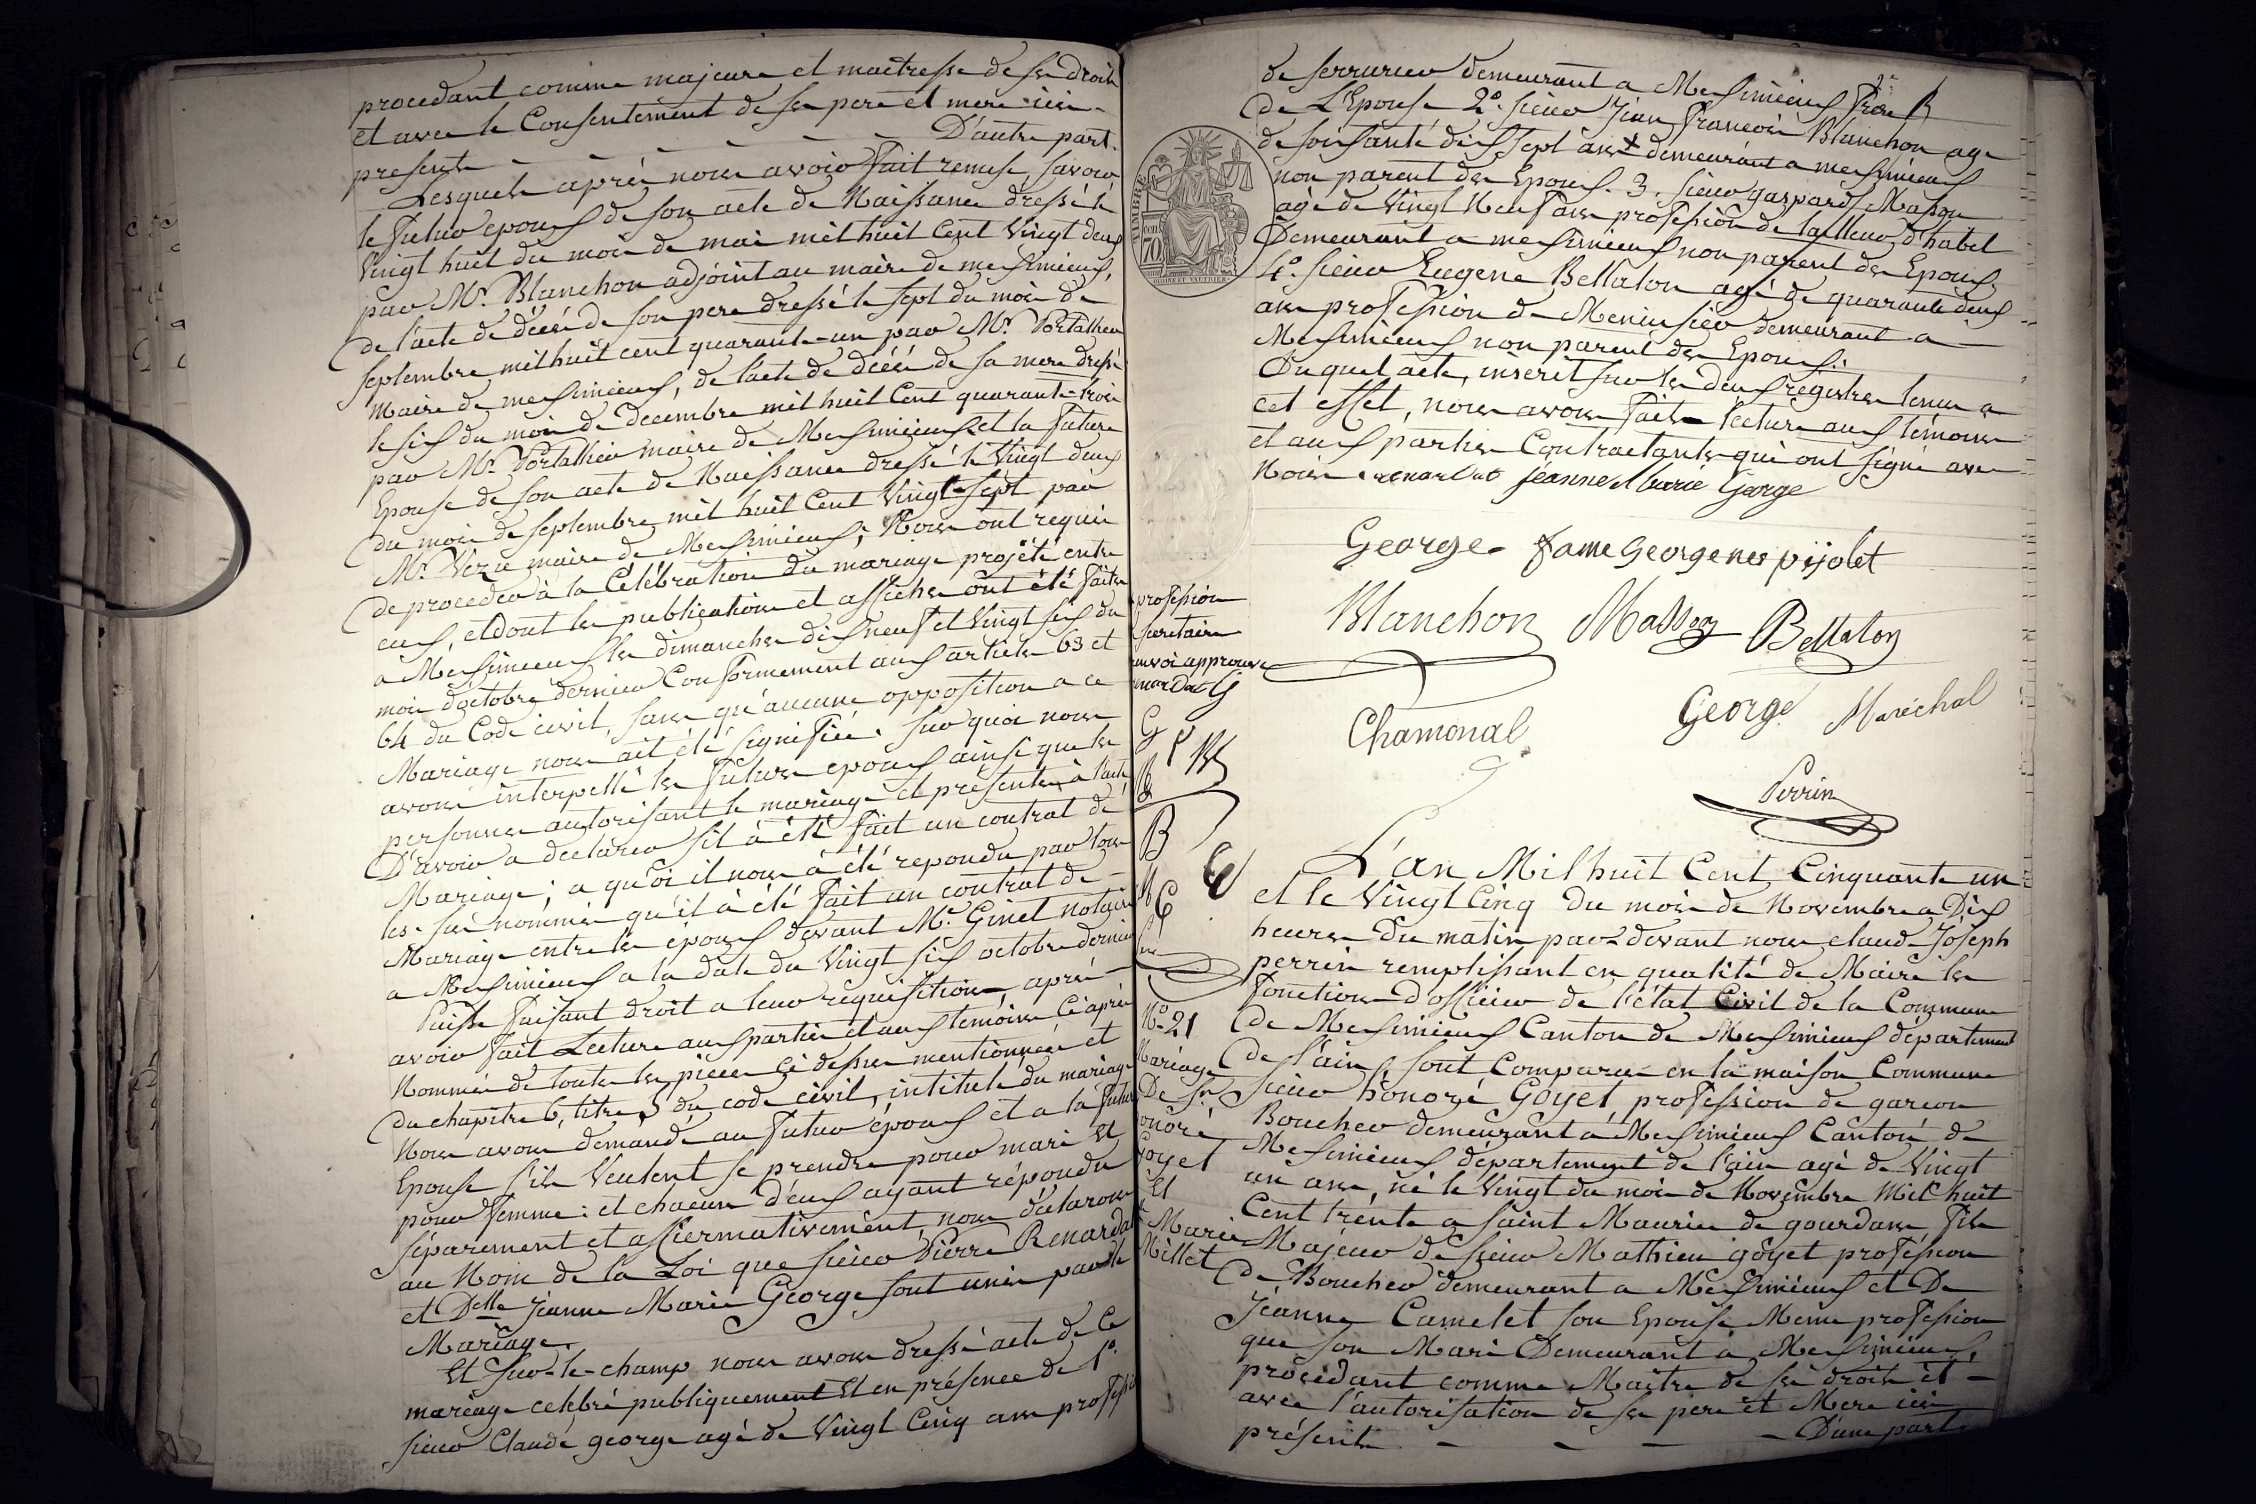 procedant comme majeure et maitresse de ses droits
et avec le Consentement de ses pere et mere ici-
presents - - - - - - D'autre part.
Lesquels après nous avoir fait remise, savoir
le futur epoux de son acte de Naissance dressé le
Vingt huit du mois de mai mil huit Cent Vingt deux
par Mr. Blanchon adjoint au maire de meximieux,
de l'acte de décès de son pere dressé le sept du mois de
septembre mil huit cent quarante-un par Mr. Portallier
Maire de meximieux, de l'acte de décès de sa mere dressé
le six du mois de decembre mil huit Cent quarante-trois
par Mr. Portallier maire de Meximieux et la future
Epouse de son acte de Naissance dressé le Vingt deux
du mois de septembre mil huit Cent Vingt-sept par
Mr. Vezu maire de Meximieux; Nous ont requis
de proceder à la Célébration du mariage projété entre
eux, et dont les publications et affiches ont été faites
a Meximieux les dimanches dix neuf et Vingt six du
mois d'octobre dernier Conformement aux articles 63 et
64 du Code civil, sans qu'aucune opposition a ce
Mariage nous ait été signifiée. Sur quoi nous
avons interpellé les futurs epoux ainsi que les
personnes autorisant le mariage et présentes à l'acte
D'avoir a declarer s'il à été fait un contrat de
Mariage; a quoi il nous à été repondu par tous
les sus nommés qu'il à été fait un contrat de -
Mariage entre les époux devant Me. Ginet notaire
a Meximieux a la date du Vingt six octobre dernier
Puis faisant droit a leur requisition, après
avoir fait Lecture aux parties et aux temoins Ci après
Nommés de toutes les pieces ci dessus mentionnées et
du chapitre 6, titre 5 du code civil, intitulé du mariage
Nous avons demandé au futur époux et a la future
Epouse s'ils Veulent se prendre pour mari et
pour femme: et chacun d'eux ayant répondu
séparement et affirmativement, nous déclarons
au Nom de la Loi que sieur Pierre Renardat
et Delle Jeanne Marie George sont unis par le
Mariage.
Et Sur-le-champ nous avons dressé acte de Ce
mariage celebré publiquement Et en présence de 1°.
sieur Claude george agé de Vingt Cinq ans profession
de serrurier demeurant a Meximieux frère
de L'Epouse 2°. sieur Jean François Blanchon age
de soixante dix sept ans demeurant a meximieux
non parent des Epoux. 3. sieur gaspard Masson
agé de Vingt Neuf ans profession de tailleur d'habit
Demeurant a meximieux non parent des Epoux,
4°. sieur Eugene Bellaton agé de quarante deux
ans profession de Menuisier demeurant a
Meximieux non parent des Epoux.
Du quel acte, inscrit sur les deux registres tenus a
cet effet, nous avons fait lecture aux témoins
et aux parties Contractantes qui ont signé avec
Nous. renardat jeanne Marie George
George fame George nee pijolet
Blanchon Masson Bellaton
Chamonal George Maréchal
Perrin
profession
secretaire
renvoi approuvé
renardat G
G
B
L'an Mil huit Cent Cinquante un
et le Vingt Cinq du mois de Novembre a Dix
heures du matin par-devant nous claude Joseph
perrin remplissant en qualité de Maire les
fonctions d'officier de l'état Civil de la Commune
de Meximieux Canton de Meximieux département
de l'ain, sont Comparus en la maison Commune
sieur honoré Goyet profession de garcon
Boucher demeurant a Meximieux Canton de
Meximieux département de l'ain agé de Vingt
un ans, né le Vingt du mois de Novembre Mil huit
Cent trente a Saint Maurice de gourdans fils
Majeur de sieur Mathieu goyet profession
de Boucher demeurant a Meximieux et De
Jeanne Camelet son Epouse Meme profession
que son Mari Demeurant à Meximieux,
procédant comme Maître de ses droits et -
avec l'autorisation de ses pere et Mere ici
présents - - - - D'une part.
No. 21
Mariage
De Sr
honoré
Goyet
Et
Marie
Millet